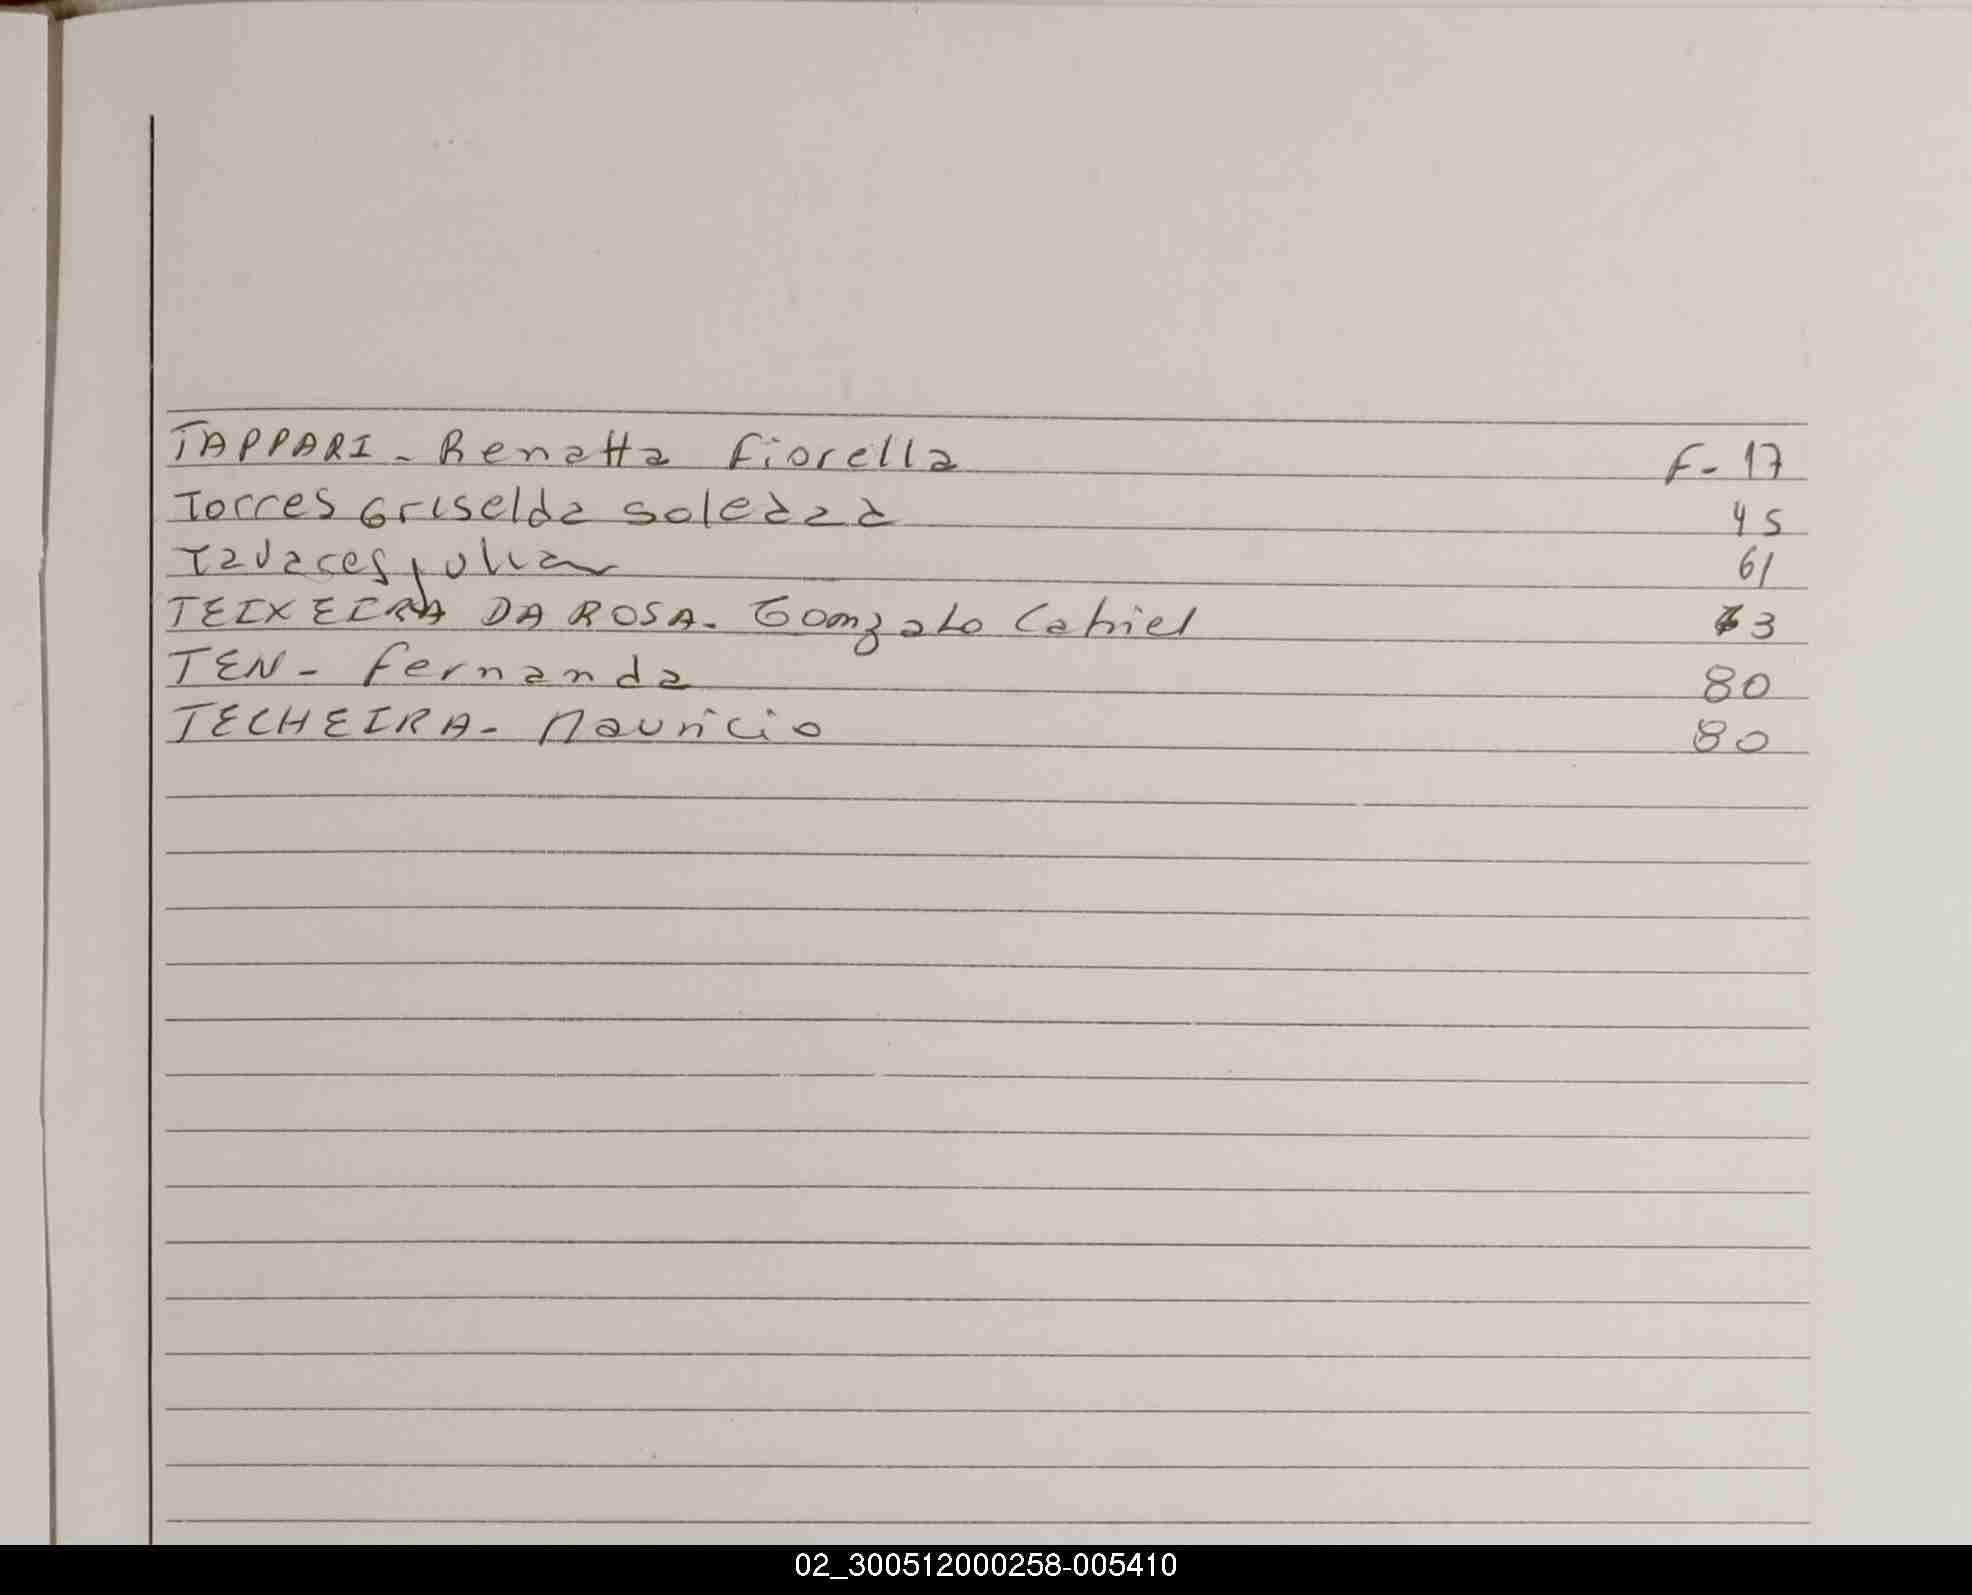 TAPPARI - Renatta Fiorella F- 17
Torres Griselda soledad 45
Tavares Julian 61
TEIXEIRA DA ROSA - Gonzalo Cabriel 63
TEN - Fernanda 80
TECHEIRA - Mauricio 80
02_300512000258-005410